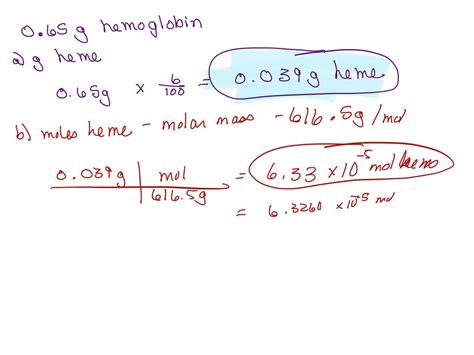 0.65 g hemoglobin
a) g heme
0.65g × 6/100 = 0.039 g heme
b) moles heme - molar mass - 616.5g/mol
0.039g | mol / 616.5g = 6.33 × 10⁻⁵ mol heme
= 6.3260 × 10⁻⁵ mol